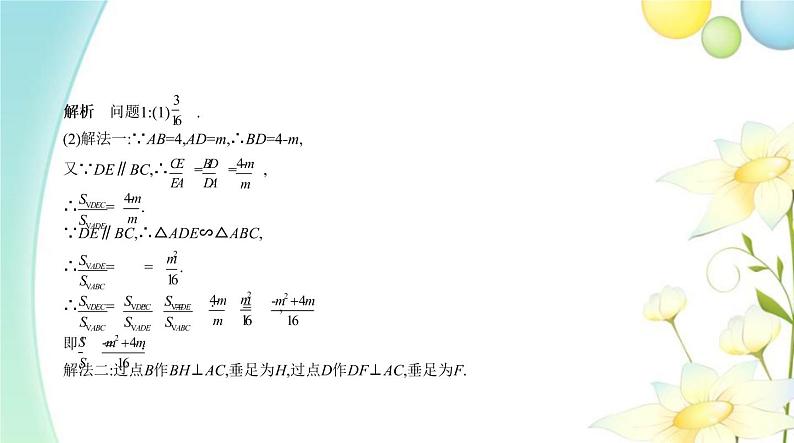 解析 问题1:(1) 3/16 .
(2)解法一:∵AB=4,AD=m,∴BD=4-m,
又∵DE∥BC,∴CE/EA=BD/DA=4-m/m,
∴S▽DEC/S▽ADE=4-m/m.
∵DE∥BC,∴△ADE∽△ABC,
∴S▽ADE/S▽ABC= =m²/16.
∴S▽DEC/S▽ABC=S▽DEC/S▽ADE·S▽ADE/S▽ABC=4-m/m·m²/16=-m²+4m/16,
即S'/S=-m²+4m/16.
解法二:过点B作BH⊥AC,垂足为H,过点D作DF⊥AC,垂足为F.